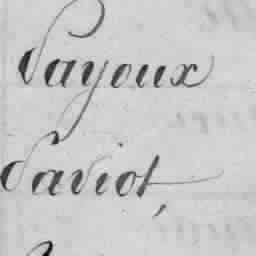 Sayoux
Saviot,